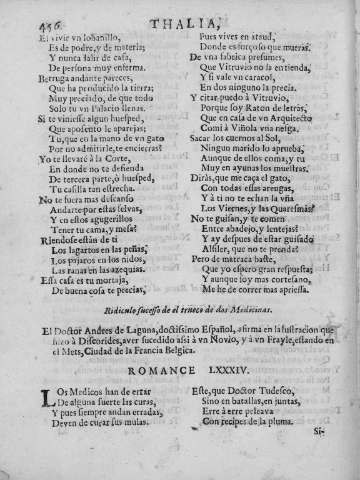 456 THALIA,
El vivir vn lobanillo,
Es de podre, y de materia;
Y nunca salir de casa,
De persona muy enferma.
Berruga andante pareces,
Que ha producido la tierra;
Muy preciado, de que todo
Solo tu vn Palacio llenas.
Si te viniesse algun huesped,
Que aposento le aparejas;
Tu, que en la mano de vn gato
Por no admitirle, te encierras?
Yo te llevaré à la Corte,
En donde no te defienda
De tercera parte, ò huesped,
Tu casilla tan estrecha.
No te fuera mas descanso
Andarte por estas selvas,
Y en estos agugerillos
Tener tu cama, y mesa?
Riendose están de ti
Los lagartos en las peñas,
Los pajaros en los nidos,
Las ranas en las azequias.
Essa casa es tu mortaja,
De buena cosa te precias,
Pues vives en ataud,
Donde es forçoso que mueras.
De vna fabrica presumes,
Que Vitruvio no la entienda,
Y si vale vn caracol,
En dos ninguno la precia.
Y citar puedo à Vitruvio,
Porque soy Raton de letras,
Que en casa de vn Arquitecto
Comi à Viñola vna nesga.
Sacar los cuernos al Sol,
Ningun marido lo aprueba,
Aunque de ellos coma, y tu
Muy en ayunas los muestras.
Dirás, que me caça el gato,
Con todas essas arengas,
Y à ti no te echan la vña
Los Viernes, y las Quaresmas?
No te guisan, y te comen
Entre abadejo, y lentejas?
Y ay despues de estar guisado
Alfiler, que no te prendas?
Pero de matraca baste,
Que yo espero gran respuesta;
Y aunque soy mas cortesano,
Me he de correr mas apriessa.
Ridiculo sucesso de el trueco de dos Medicinas.
El Doctor Andres de Laguna, doctissimo Español, afirma en la ilustracion que
hizo à Discorides, aver sucedido assi à vn Novio, y à vn Frayle, estando en
el Mets, Ciudad de la Francia Belgica.
ROMANCE LXXXIV.
LOs Medicos han de errar
De alguna suerte las curas,
Y pues siempre andan erradas,
Deven de curar sus mulas.
Este, que Doctor Tudesco,
Sino en batallas, en juntas,
Erre à erre peleava
Con recipes de la pluma.
Si-